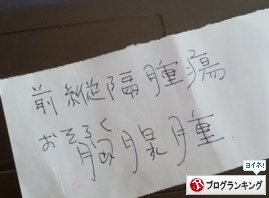 前縦隔腫瘍
おそらく
胸腺腫.
ヨイネ!
ブログランキング